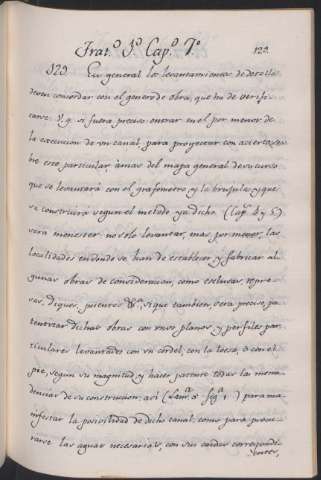 Trat.º 3.º Cap.º 7.º 123.
529. En general los levantamientos de detalle
deven concordar con el genero de obra, que ha de verifi-
carse. V. g. si fuera preciso entrar en el por menor de
la execucion de un canal para proyectar con acierto, so-
bre este particular, à mas del mapa general de su curso
que se levantará con el grafometro, y la brujula, y que
se construirá segun el metodo ya dicho (Cap. 4 y 5)
sera menester no solo levantar, mas por menor, las
localidades en donde se han de establecer y fabricar al-
gunas obras de consideracion, como esclusas, repre-
sas, diques, puentes &c., si que tambien sera preciso, pa-
tentizar dichas obras con unos planos y perfiles par-
ticulares levantados con un cordel, con la toesa, ò con el
pie, segun su magnitud, y hacer patente todas las menu-
dencias de su construccion; asi (Lam.ª 8 fig.ª 1) para ma-
nifestar la posivilidad de dicho canal, como para procu-
rarse las aguas necesarias, con sus caidas correspondi-
entes,